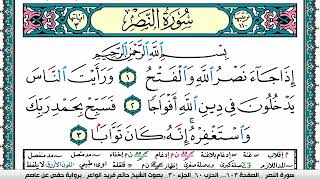 سُورَةُ النَّصْرِ
بِسْمِ اللَّهِ الرَّحْمَٰنِ الرَّحِيمِ
إِذَا جَاءَ نَصْرُ اللَّهِ وَالْفَتْحُ ١ وَرَأَيْتَ النَّاسَ
يَدْخُلُونَ فِي دِينِ اللَّهِ أَفْوَاجًا ٢ فَسَبِّحْ بِحَمْدِ رَبِّكَ
وَاسْتَغْفِرْهُ إِنَّهُ كَانَ تَوَّابًا ٣
سورة النصر الصفحة ٦٠٣ الجزء ٣٠ بصوت الشيخ حاتم فريد الواعر برواية حفص عن عاصم